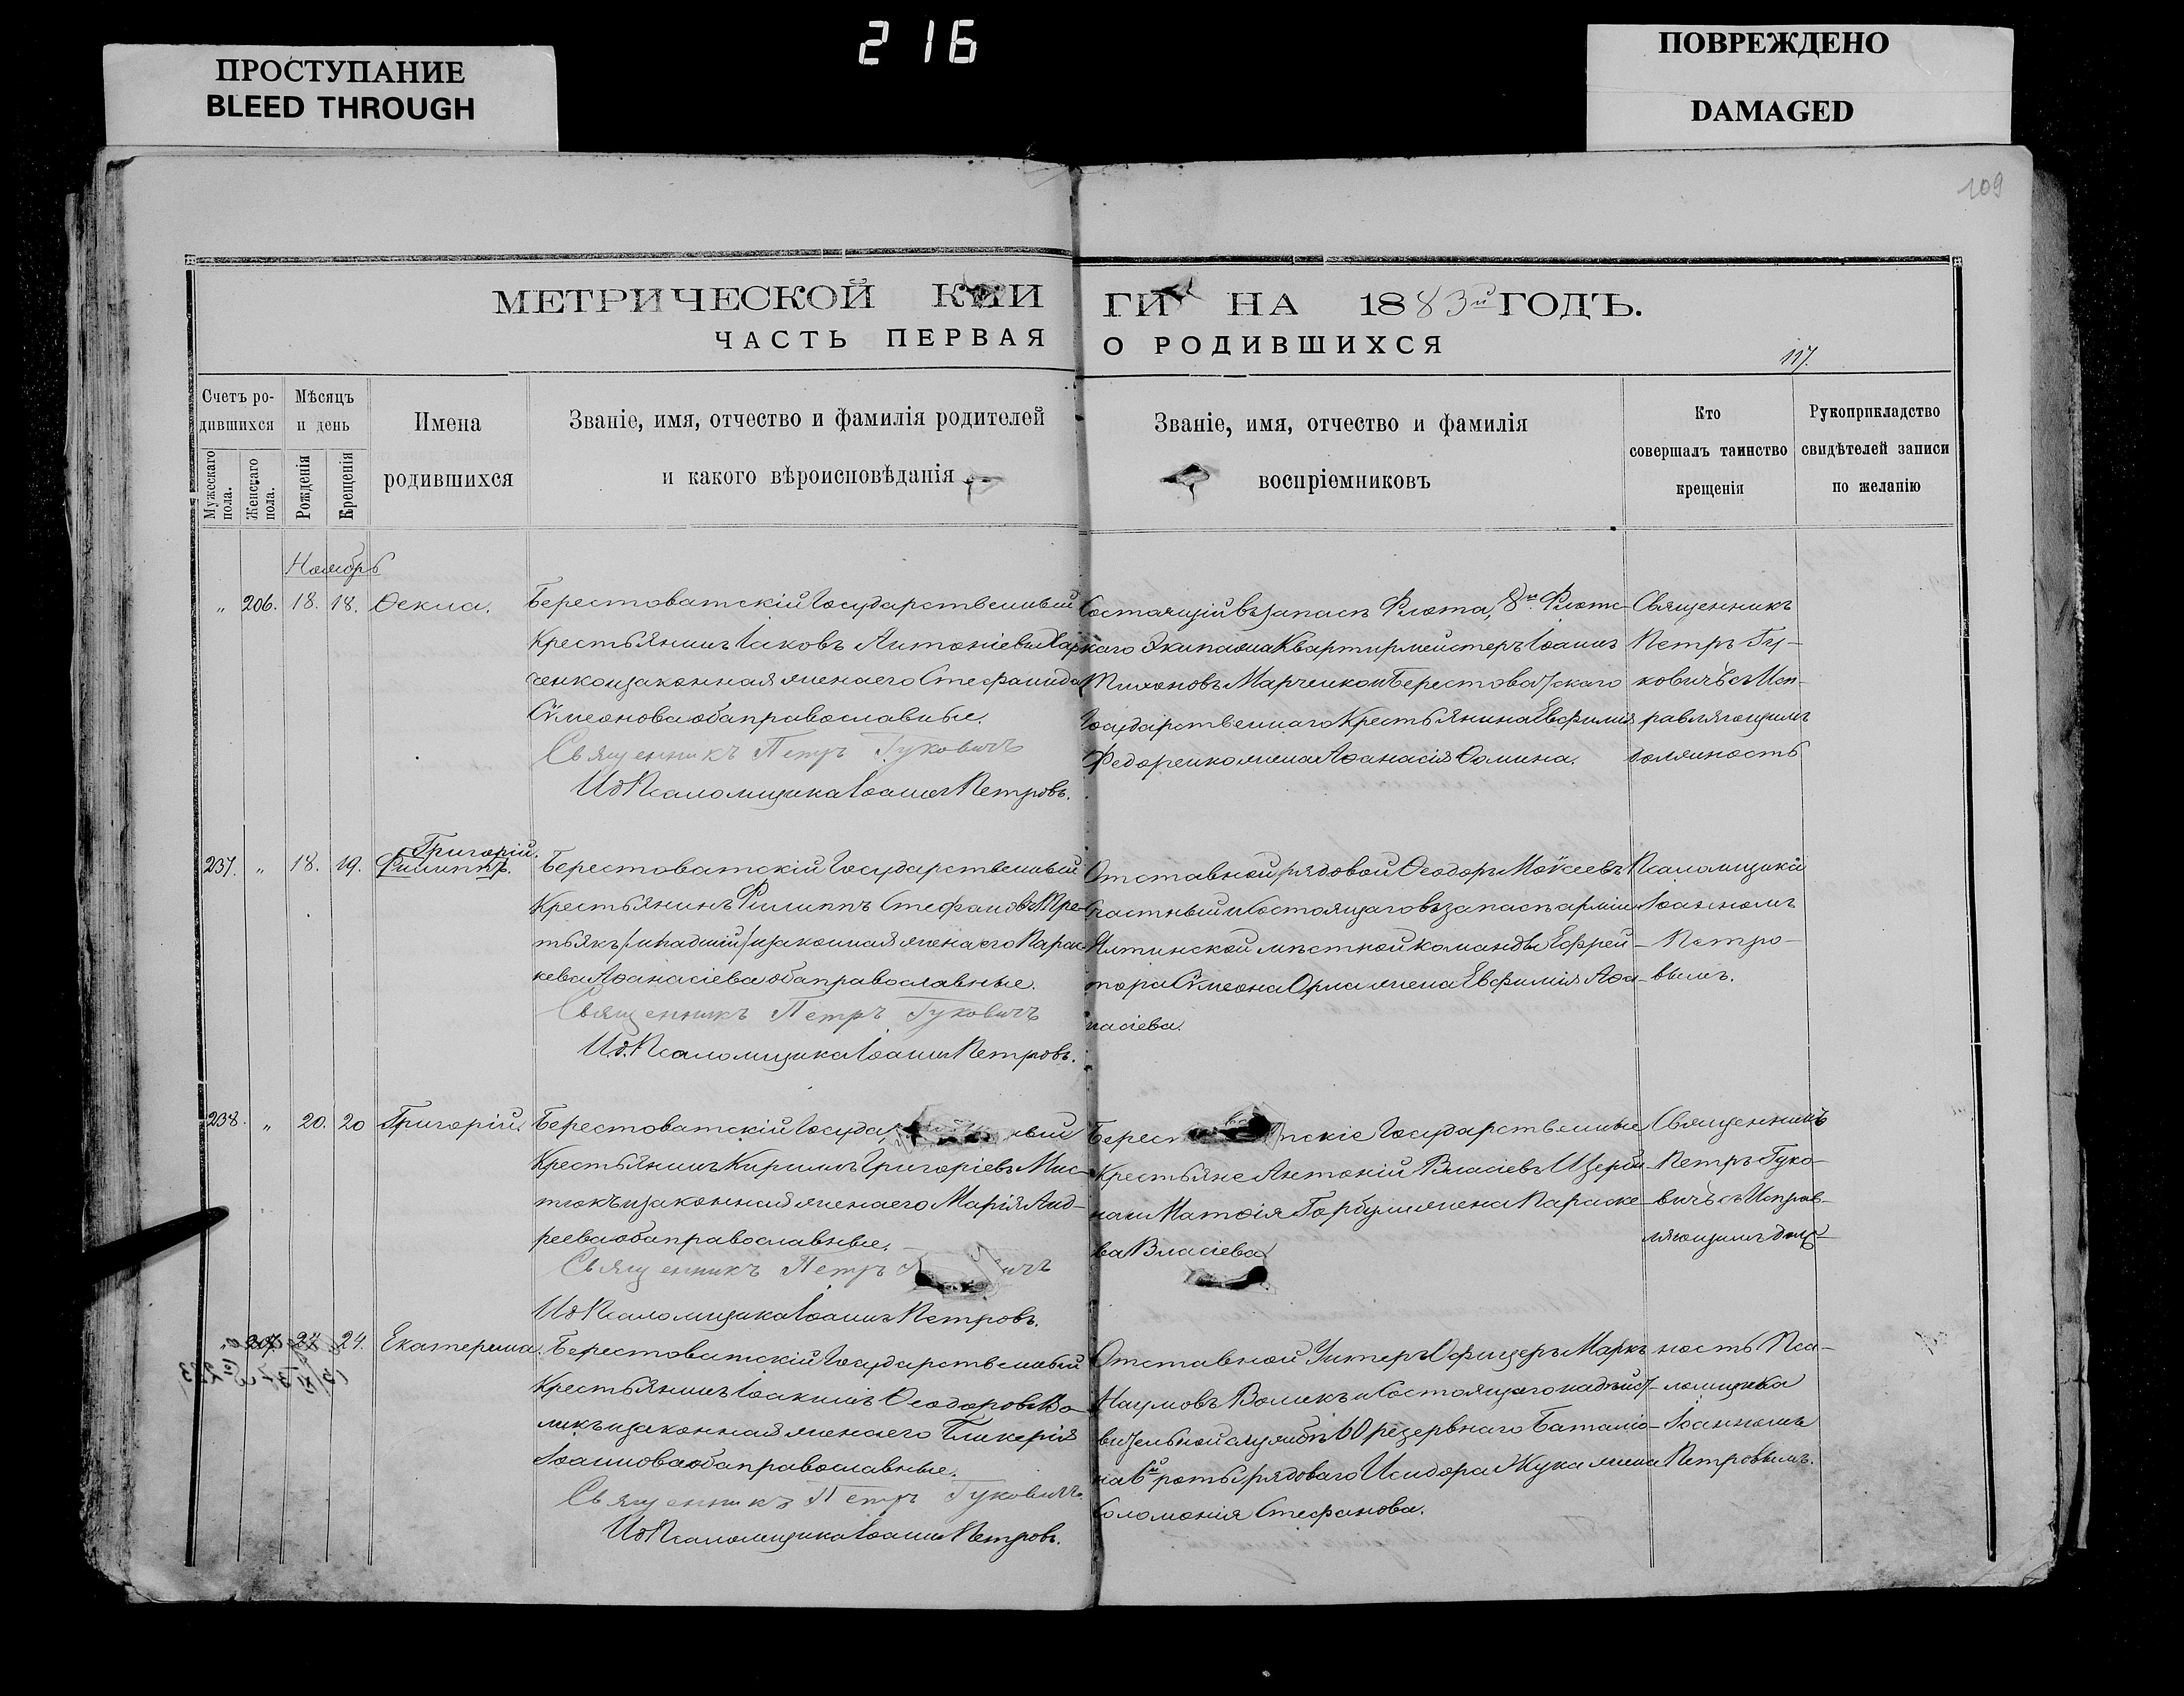 ПРОСТУПАНИЕ
BLEED THROUGH
216
ПОВРЕЖДЕНО
DAMAGED
109
МЕТРИЧЕСКОЙ КНИГИ НА 1883й ГОДЪ.
ЧАСТЬ ПЕРВАЯ О РОДИВШИХСЯ
117.
Счетъ ро-
дившихся
Мужескаго пола.
Женскаго пола.
Мѣсяцъ
и день
Рожденія
Крещенія
Имена
родившихся
Званіе, имя, отчество и фамилія родителей
и какого вѣроисповѣданія
Званіе, имя, отчество и фамилія
воспріемниковъ
Кто
совершалъ таинство
крещенія
Рукоприкладство
свидѣтелей записи
по желанію
Ноябрь
„ 206. 18. 18. Ѳекла.
Берестоватскій Государственный
Крестьянинъ Іаковъ Антоніевъ Хар
ченко и законная жена его Стефанида
Сѵмеонова оба православные.
Священникъ Петръ Гуковичъ
Ид Псаломщика Іоаннъ Петровъ.
Состоящій въ запасѣ Флота, 8го Флотс-
каго Экипажа Квартирмейстеръ Іоаннъ
Тихоновъ Марченко и Берестоватскаго
Государственнаго Крестьянина Евфимія
Федоренко жена Аѳанасія Ѳомина.
Священникъ
Петръ Гу-
ковичъ съ Исп-
равляющимъ
должность
237. „ 18. 19. Григорій.
Филиппъ.
Берестоватскій Государственный
Крестьянинъ Филиппъ Стефановъ Тре-
тьякъ /младшій/ и законная жена его Парас-
кева Аѳанасіева оба православные.
Священникъ Петръ Гуковичъ
И.д. Псаломщика Іоаннъ Петровъ.
Отставной рядовой Ѳеодоръ Моѵсеевъ
Счастный и Состоящаго въ запасѣ арміи
Ялтинской мѣстной команды Ефрей-
тора Сѵмеона Орла жена Евфимія Аѳа-
насіева.
Псаломщикъ
Іоанномъ
Петро-
вымъ.
238. „ 20. 20 Григорій.
Берестоватскій Госуда ный
Крестьянинъ Кириллъ Григоріевъ Мис-
токъ и законная жена его Марія Анд-
реева оба православные.
Священникъ Петръ ичъ
Ид Псаломщика Іоаннъ Петровъ.
Берес тскіе Государственные
Крестьяне Антоній Власіевъ Щерби-
на и Матѳія Горбуля жена Параске-
ва Власіева
Священникъ
Петръ Гуко-
вичъ съ Исправ-
ляющимъ долж-
„ 207. 24 24. Екатерина.
Берестоватскій Государственный
Крестьянинъ Іоакимъ Ѳеодоровъ Во-
ликъ и законная жена его Гликерія
Іоаннова оба православные.
Священникъ Петръ Гуковичъ
Ид Псаломщика Іоаннъ Петровъ.
Отставной Унтеръ Офицеръ Маркъ
Наумовъ Воликъ и Состоящаго на дѣйст-
вительной службѣ 60 резервнаго Баталіо-
на 6й роты рядоваго Исидора Жука жена
Соломонія Стефанова.
ность Пса-
ломщика
Іоанномъ
Петровымъ.